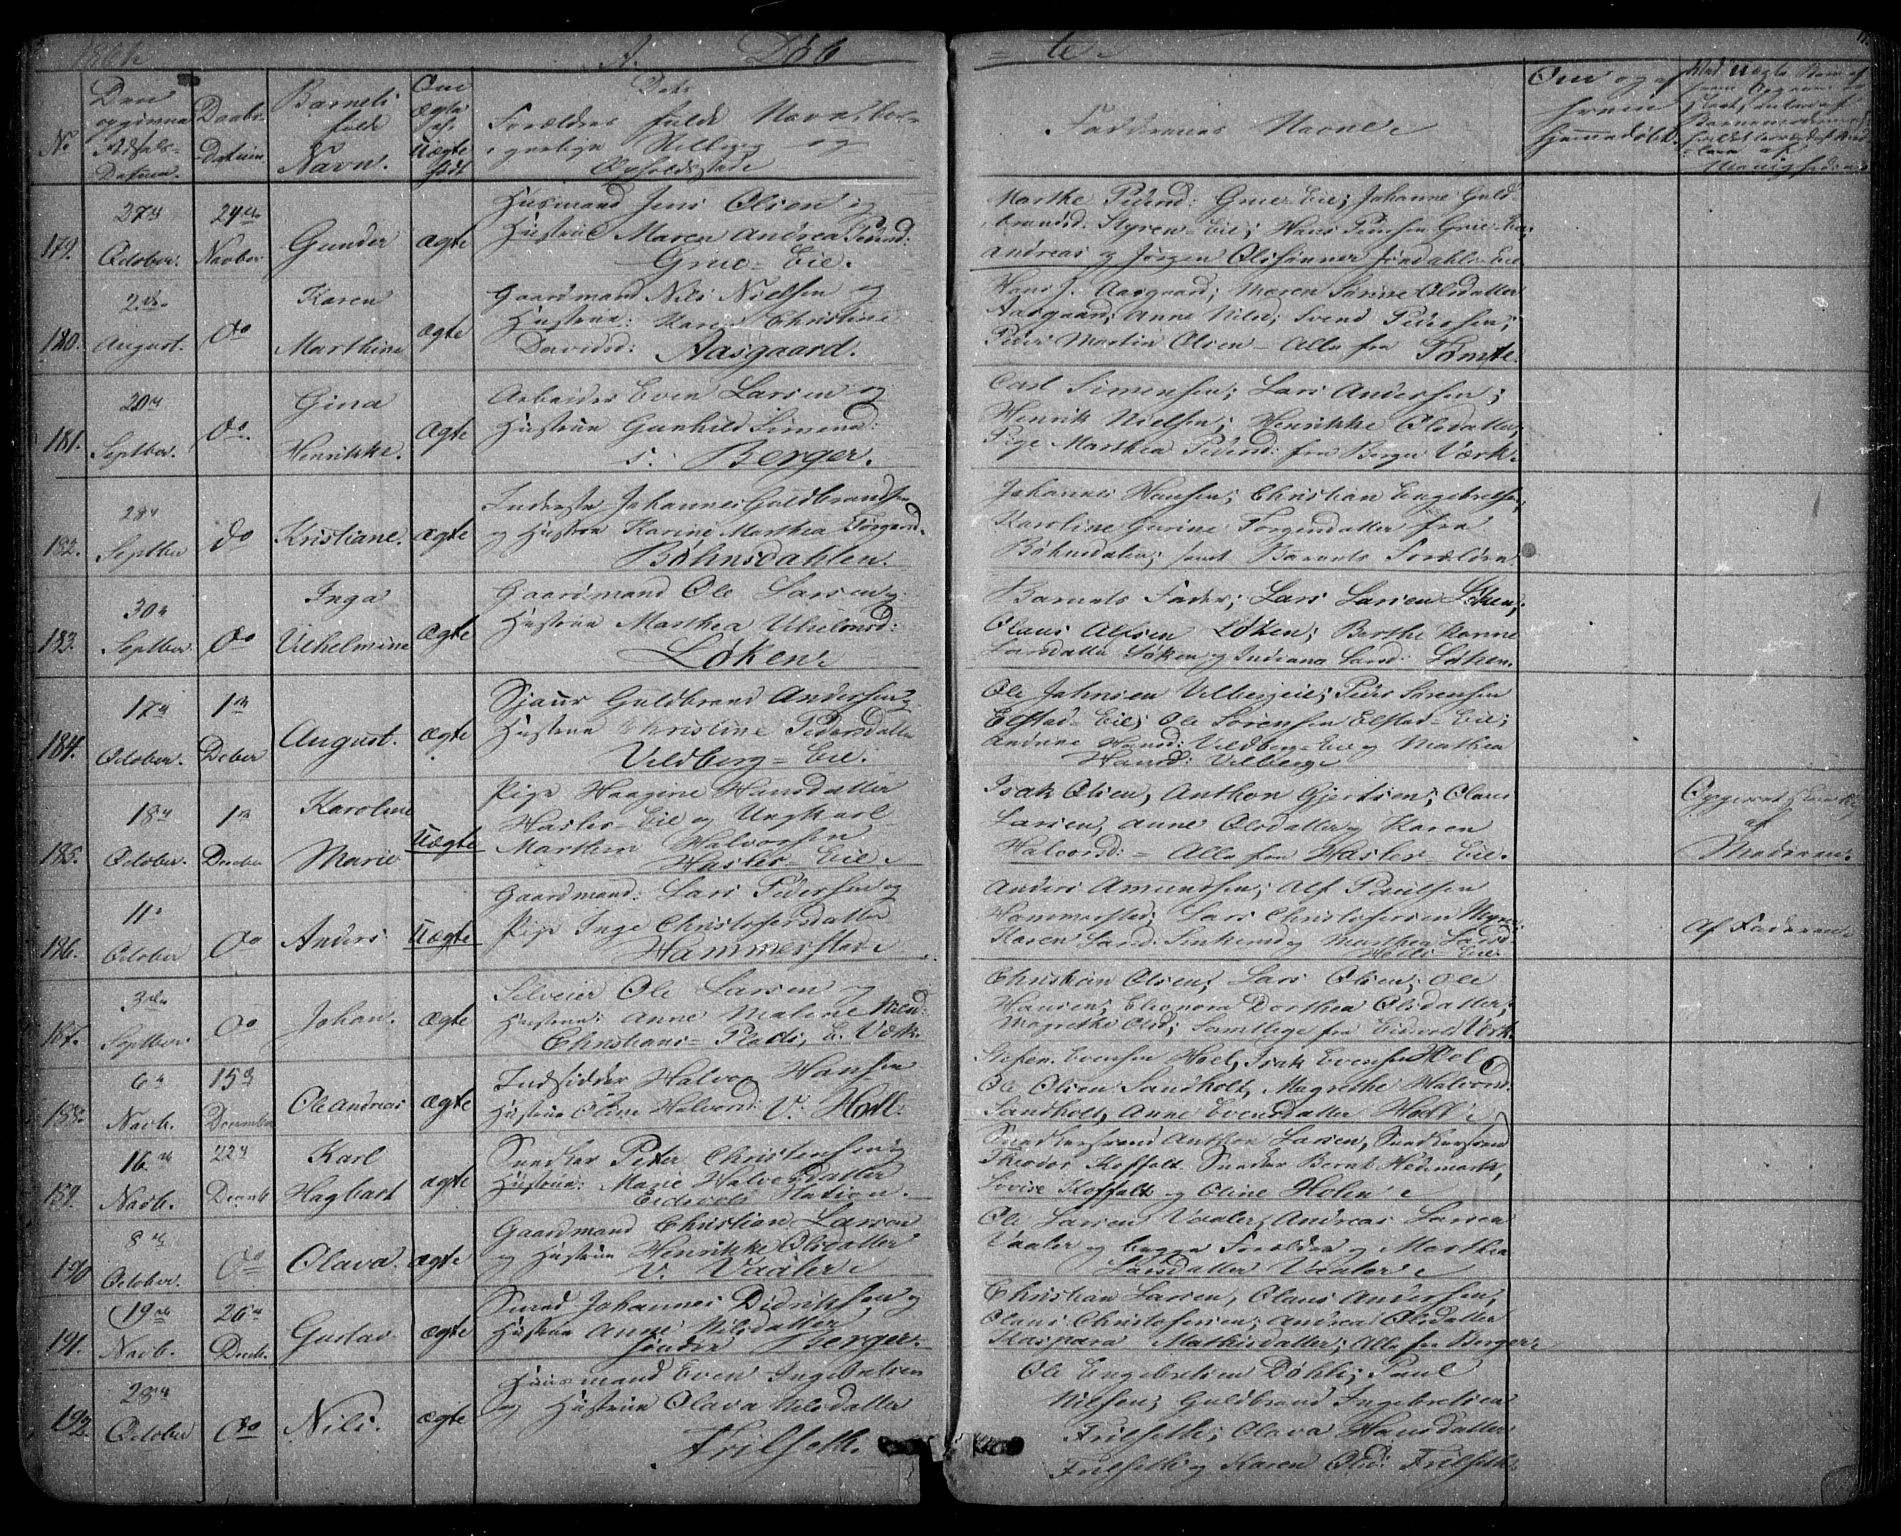 A. Døb = te
No
Den opgivne Fødsels-Datum.
Daabs-Datum
Barnets fulde Navn.
Om ægte el. Uægte født
Dets Forældres fulde Navn, og Opholdssted
Faddernes Navne
Om og af hvem Hjemmedøbt.
179.
27de October.
29de Novber
Gunder
ægte
Husmand Jens Olsen og
Hustrue Maren Andrea Pedersd:
Grue-Eie.
Marthe Pedersd: Grue Eie; Johanne Guld-
brandsd: Styren-Eie; Hans Pedersen Grue-Eie
Andreas og Jørgen Olssønner Jøndahls-Eie
180.
2den August.
do
Karen Marthine
ægte
Gaardmand Nils Nielsen og
Hustrue: Karen Christine
Davidsd: Aasgaard.
Hans J. Aasgaard; Maren Olsdatter
Aasgaard; Anne Nilsd; Svend Pedersen;
Peder Martin Olsen - Alle fra Tømte.
181.
20de Septber.
do.
Gina Henrikke.
ægte
Arbeider Even Larsen og
Hustrue Gunhild Simensd:
s: Berger.
Carl Simensen; Lars Andersen;
Henrik Nielsen; Henrikke Olsdatter,
Pige Marthea Pedersd: fra Berger Værk.
182.
28de Septber
do
Kristiane.
ægte
Inderste Johannes Guldbrandsen
og Hustrue Karine Marthea Torgersd.
Bøhnsdahlen.
Johannes Hansen; Christian Engebretsen;
Karoline Gurine Torgersdatter fra
Bøhnsdalen; samt Barnets Forældre.
183.
30te Septber.
do
Inga Vilhelmine
ægte
Gaardmand Ole Larsen og
Hustrue Marthea
Løken.
Barnets Fader; Lars Larsen Løken;
Olaus Alfsen Løken; Berthe Hanne
Larsdatter Løken og Indiana Larsd: Løken.
184.
17de October.
1ste Deber
August.
ægte
Guldbrand Andersen og
Hustrue Christine Pedersdatter
Veldberg-Eie.
Ole Johnsen Velbergeie; Peder Sørensen
Elstad-Eie; Ole Sørensen Elstad-Eie;
Andrine Hansd: Veldberg-Eie og Mathea
Hansd: Velberg
185.
18de October.
1ste Decber
Karoline Marie
Uægte
Pige Haagine Hansdatter
Hasler-Eie og Ungkarl
Marthin Halvorsen
Hasler-Eie
Isak Olsen, Anthon Gjertsen; Olaus
Larsen, Anne Olsdatter og Karen
Halvorsd: - Alle fra Hasler-Eie.
af Moderen.
186.
11te October
do
Anders
Uægte
Gaardmand: Lars Pedersen og
Pige Inge Christofersdatter
Hammerstad
Anders Amundsen; Alf Paulsen
Hammerstad; Lars Christofersen Myrer;
Karen Larsd: og Marthea Larsd:
Af Faderen
187.
3die Septber.
do
Johan.
ægte
Ole Larsen og
Hustrue: Anne Malene Nilsd:
Christians-Plads, E. Værk.
Christian Olsen; Lars Olsen; Ole
Hansen; Eleonora Dorthea Olsdatter;
Magrethe Olsd; Samtlige fra Eidsvolds Værk.
188.
6te Novb.
15de December
Ole Andreas
ægte
Indsidder Halvor Hansen
Hustrue Oline Halvorsd: V: Hoel:
Stefen Evensen Hoel, Isak Evensen Hoel
Ole Olsen Sandholt, Magrethe Halvorsd:
Sandholt, Anne Evensdatter Hoel
189.
16de Novb.
22de Decemb
Karl Hagbart
ægte
Snedker Peter Christensen og
Hustrue: Marie Halvorsdatter
Eidsvold Station.
Snedkersvend Anthon Larsen, Snedkersvend
Theodor Koffalt, Snedker Bernt Hedemark,
Lovise Koffalt og Oline Holen
190
8de October.
do
Olava.
ægte
Gaardmand Christian Larsen
og Hustrue Henrikke Olsdatter
V. Vaaler
Ole Larsen Vaaler, Andreas Larsen
Vaaler og begge Forældre og Marthea
Larsdatter Vaaler
191.
19de Novb.
26de Decb.
Gustav
ægte
Smed Johannes Didriksen og
Hustrue Anne Nilsdatter
søndre Berger.
Christian Larsen, Olaus Andersen,
Olaus Christofersen; Andrea Olsdatter
Kaspara Mathisdatter; Alle fra Berger
192.
28de October
do
Nils.
ægte
Husmand Even Ingebretsen
og Hustrue Olava Nilsdatter
Frilseth.
Ole Engebretsen Døhli; Paul
Nilsen; Guldbrand Ingebretsen
Frilseth; Olava Hansdatter
Frilseth og Karen Olsd: Frilseth